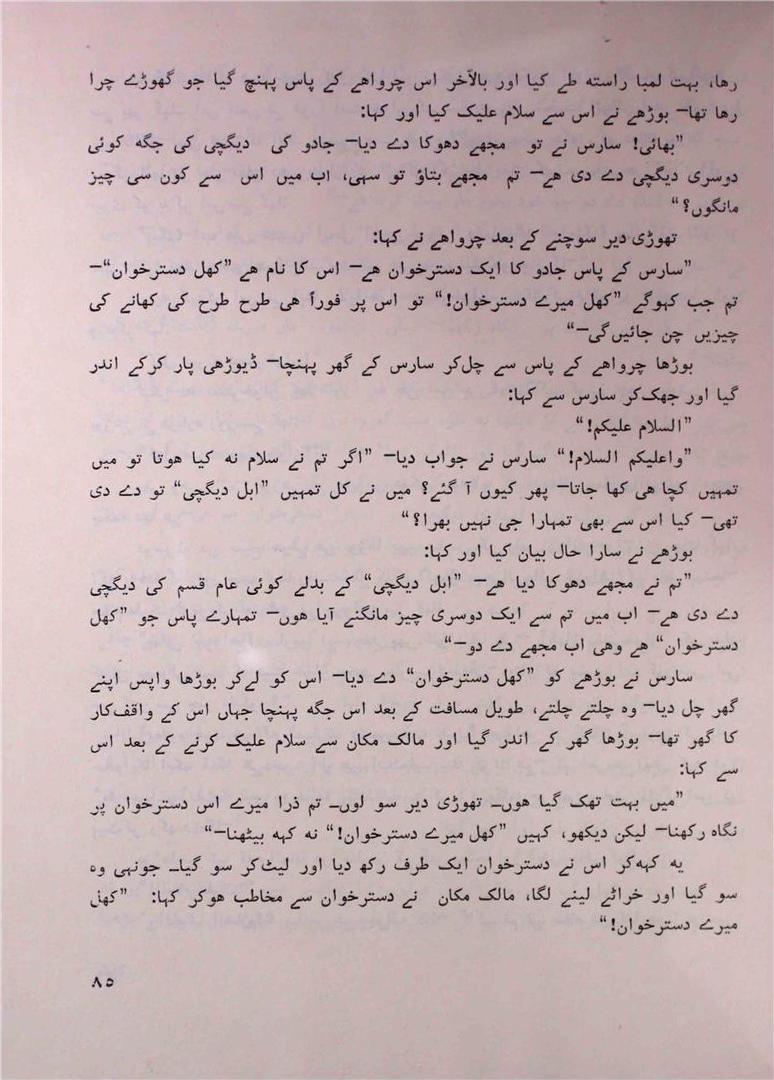 رھا، بہت لمبا راستہ طے کیا اور بالآخر اس چرواھے کے پاس پہنچ گیا جو گھوڑے چرا
رھا تھا— بوڑھے نے اس سے سلام علیک کیا اور کہا:
”بھائی! سارس نے تو مجھے دھوکا دے دیا— جادو کی دیگچی کی جگہ کوئی
دوسری دیگچی دے دی ھے— تم مجھے بتاؤ تو سہی، اب میں اس سے کون سی چیز
مانگوں؟“
تھوڑی دیر سوچنے کے بعد چرواھے نے کہا:
”سارس کے پاس جادو کا ایک دسترخوان ھے— اس کا نام ھے ”کھل دسترخوان“—
تم جب کہوگے ”کھل میرے دسترخوان!“ تو اس پر فوراً ھی طرح طرح کی کھانے کی
چیزیں چن جائیں‌گی—“
بوڑھا چرواھے کے پاس سے چل‌کر سارس کے گھر پہنچا— ڈیوڑھی پار کرکے اندر
گیا اور جھک‌کر سارس سے کہا:
”السلام علیکم!“
”واعلیکم السلام!“ سارس نے جواب دیا— ”اگر تم نے سلام نہ کیا ھوتا تو میں
تمہیں کچا ھی کھا جاتا— پھر کیوں آ گئے؟ میں نے کل تمہیں ”ابل دیگچی“ تو دے دی
تھی— کیا اس سے بھی تمہارا جی نہیں بھرا؟“
بوڑھے نے سارا حال بیان کیا اور کہا:
”تم نے مجھے دھوکا دیا ھے— ”ابل دیگچی“ کے بدلے کوئی عام قسم کی دیگچی
دے دی ھے— اب میں تم سے ایک دوسری چیز مانگنے آیا ھوں— تمہارے پاس جو ”کھل
دسترخوان“ ھے وھی اب مجھے دے دو—“
سارس نے بوڑھے کو ”کھل دسترخوان“ دے دیا— اس کو لے‌کر بوڑھا واپس اپنے
گھر چل دیا— وہ چلتے چلتے، طویل مسافت کے بعد اس جگہ پہنچا جہاں اس کے واقف‌کار
کا گھر تھا— بوڑھا گھر کے اندر گیا اور مالک مکان سے سلام علیک کرنے کے بعد اس
سے کہا:
”میں بہت تھک گیا ھوں— تھوڑی دیر سو لوں— تم ذرا میرے اس دسترخوان پر
نگاہ رکھنا— لیکن دیکھو، کہیں ”کھل میرے دسترخوان!“ نہ کہہ بیٹھنا—“
یہ کہہ‌کر اس نے دسترخوان ایک طرف رکھ دیا اور لیٹ‌کر سو گیا— جونہی وہ
سو گیا اور خرائے لینے لگا، مالک مکان نے دسترخوان سے مخاطب ھوکر کہا: ”کھل
میرے دسترخوان!“
۸۵